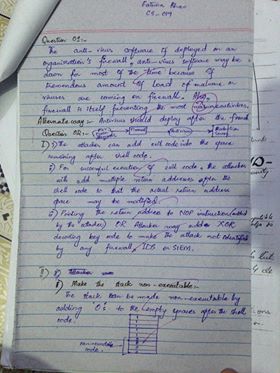 Fatima Khan
CS-019
Question 01:-
The anti-virus software if deployed on an
organization's firewall, anti-virus software may be
down for most of the time because of
tremendous amount of load of malware or
viruses are coming on firewall. Also,
firewall is itself preventing the most
Alternate way:- Antivirus should deploy after the firewall
Question 02:-
I) i) The attacker can add null code into the space
remaining after shell code.
ii) For successful execution of evil code, the attacker
will add multiple return addresses after the
shell code so that the actual return address
space may be modified.
Pointing the return address to NOP instruction (added
by the attacker) OR Attacker may add XOR
decoding key code to make the attack not identified
by any firewall, IDS or SIEM.
II)
Make the stack non-executable:-
The stack can be made non-executable by
adding 0's to the empty spaces after the shell
code.
non-executable
code